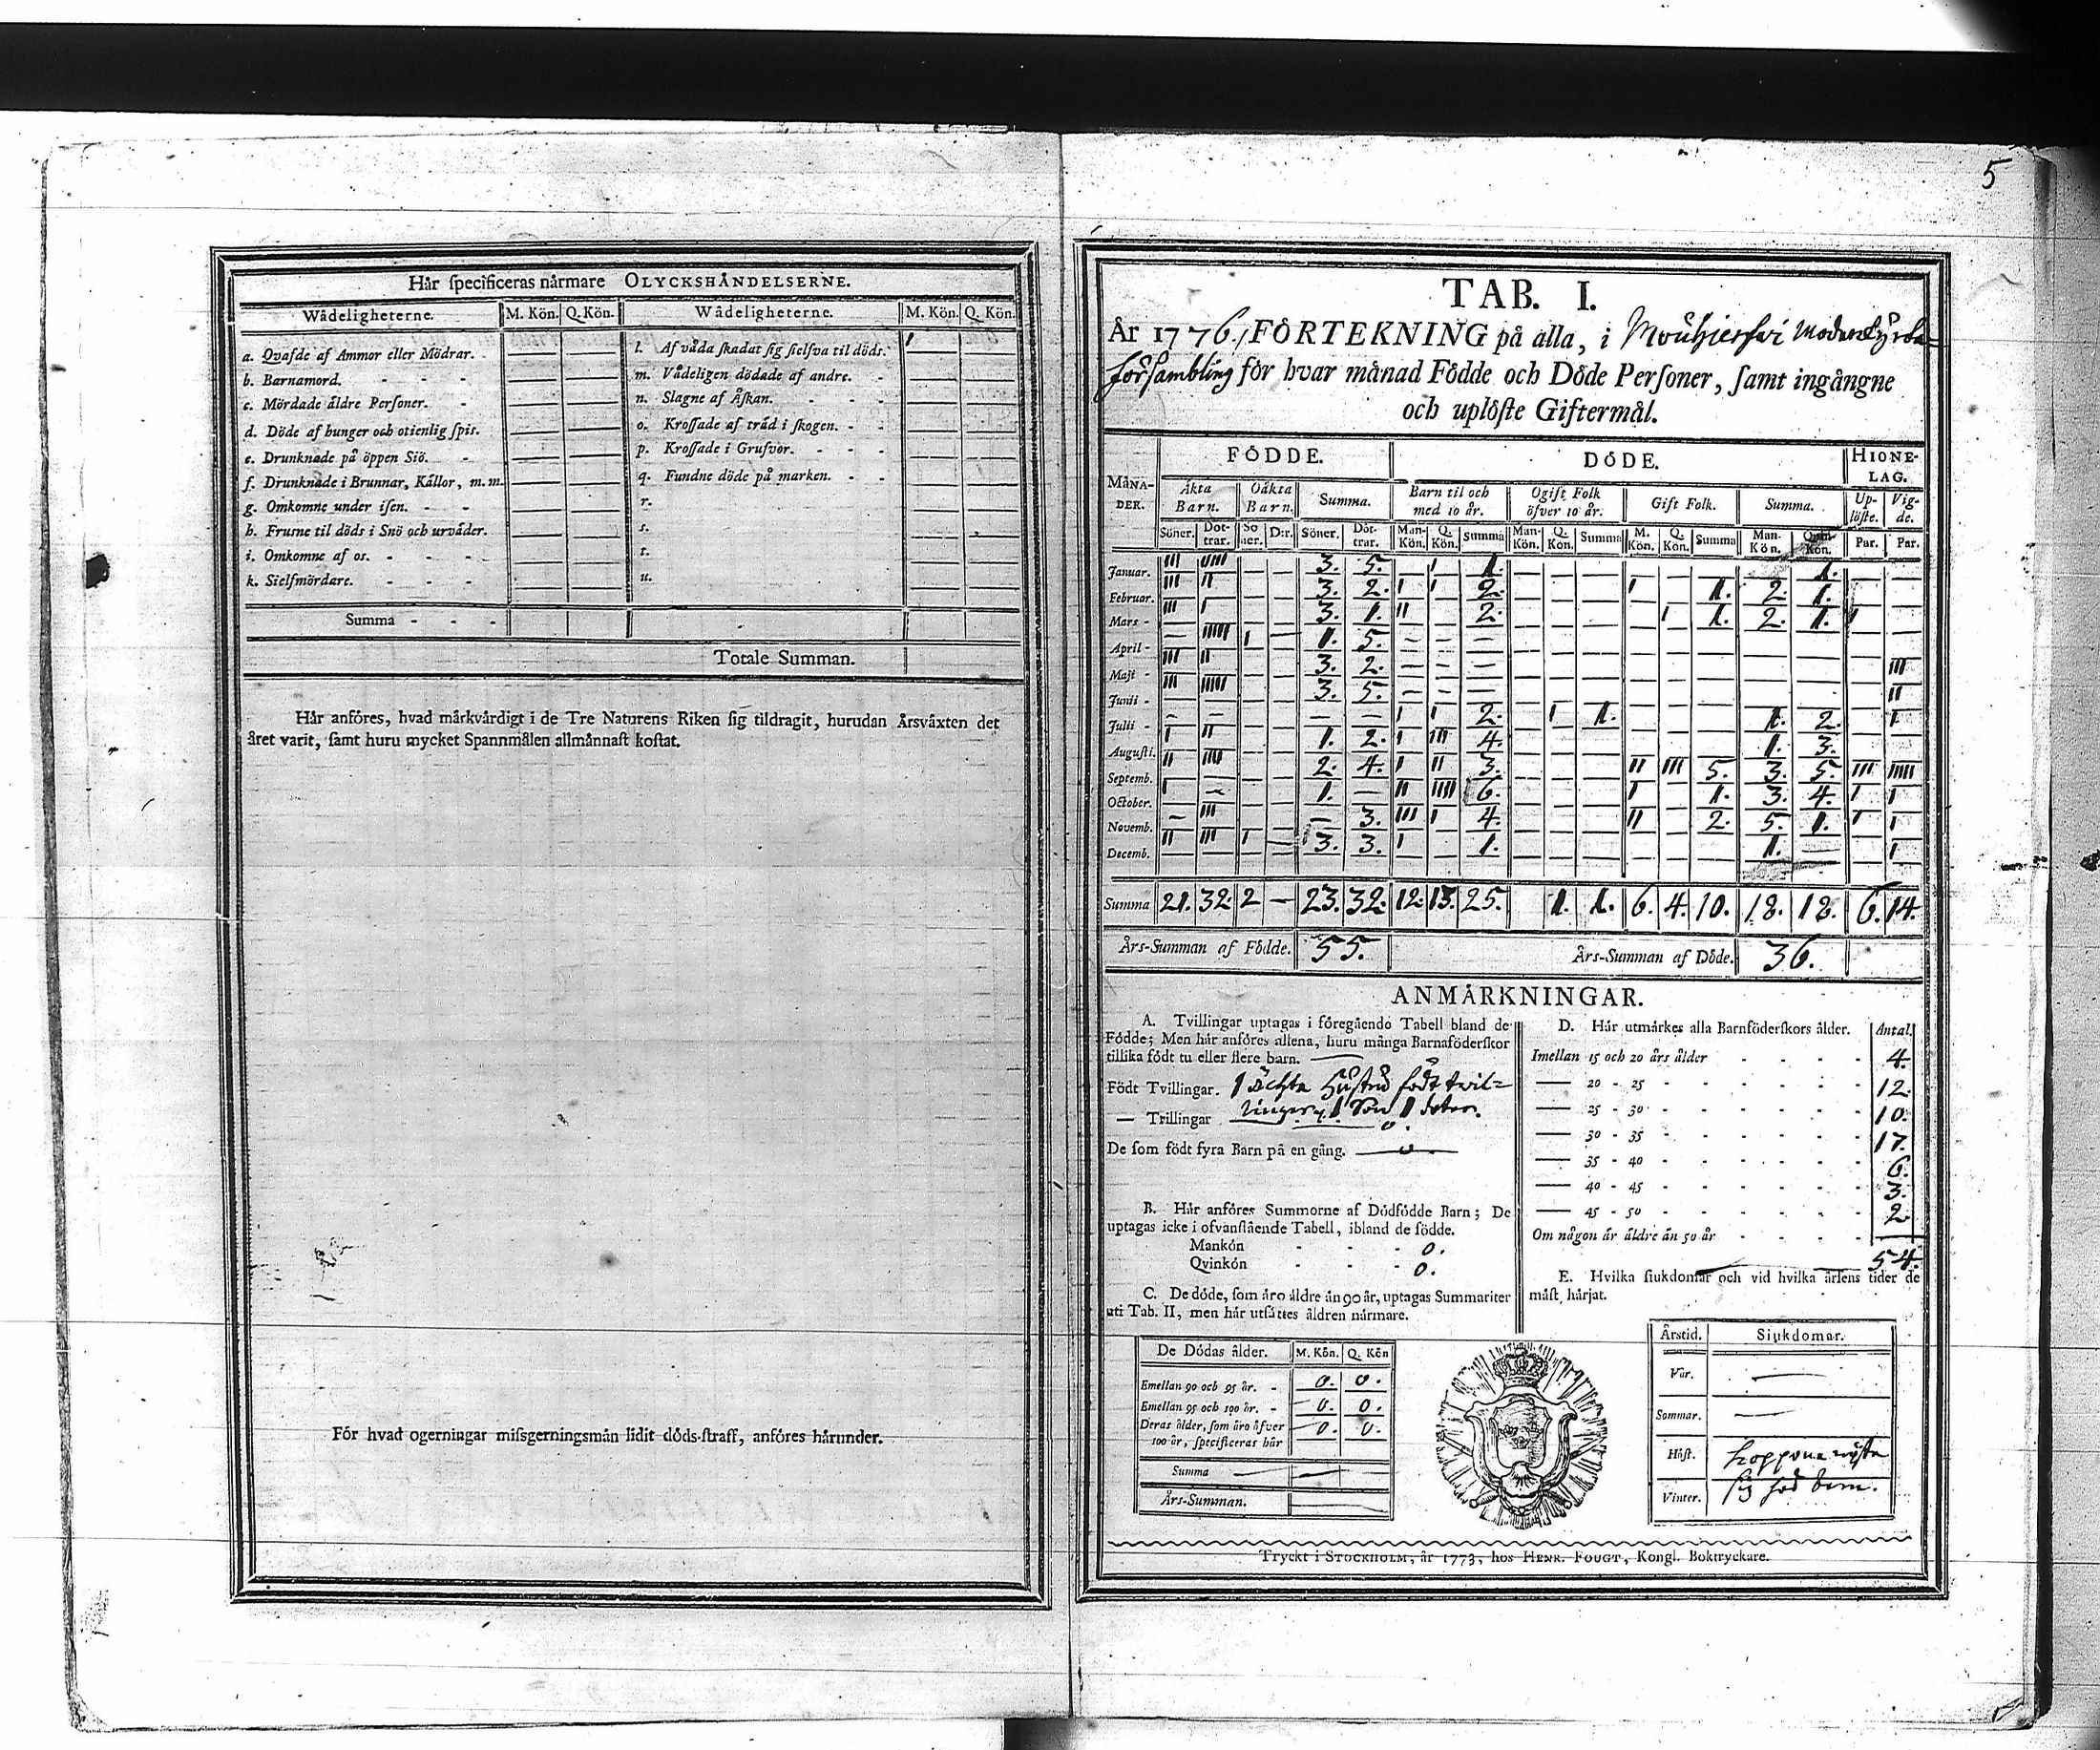 5
Hår specificeras nårmare OLYCKSHÅNDELSERNE.
Wådeligheterne. M. Kön. Q. Kön. Wådeligheterne. M. Kön. Q. Kön.
a. Qvafde af Ammor eller Mödrar. — — l. Af våda skadat sig sielfva til döds. 1
b. Barnamord. — — m. Vådeligen dödade af andre. — —
c. Mördade äldre Personer. — — n. Slagne af Åskan. — —
d. Döde af hunger och otienlig spis. — — o. Krossade af träd i skogen. — —
e. Drunknade på öppen Siö. — — p. Krossade i Grufvor. — —
f. Drunknade i Brunnar, Källor, m. m. — — q. Fundne döde på marken. — —
g. Omkomne under isen. — — r. — —
h. Frusne til döds i Snö och urväder. — — s. — —
i. Omkomne af os. — — t. — —
k. Sielfmördare. — — u. — —
Summa - - -
Totale Summan.
Hår anföres, hvad mårkvårdigt i de Tre Naturens Riken sig tildragit, hurudan Årsvåxten det
året varit, samt huru mycket Spannmålen allmånnast kostat.
För hvad ogerningar missgerningsmån lidit döds-straff, anföres hårunder.
TAB. I.
År 1776. FÖRTEKNING på alla, i Mouhijerfwi Moderkyrko=
försambling för hvar månad Födde och Döde Personer, samt ingångne
och uplöste Giftermål.
MÅNADER. FÖDDE. DÖDE. HIONELAG.
Äkta Barn. Oäkta Barn. Summa. Barn til och med 10 år. Ogift Folk öfver 10 år. Gift Folk. Summa. Uplöste. Vigde.
Söner. Dottrar. Söner. D:r. Söner. Döttrar. Man-Kön. Q. Kön. Summa Man-Kön. Q. Kön. Summa M. Kön. Q. Kön. Summa Man-Kön. Qvin-Kön. Par. Par.
Januar. III IIIII — — 3. 5. — I 1. — — — — — — — 1. — —
Februar. III II — — 3. 2. I I 2. — — — I — 1. 2. 1. — —
Mars - III I — — 3. 1. II — 2. — — — — I 1. 2. 1. I —
April - — IIIII I — 1. 5. — — — — — — — — — — — — —
Maji - III II — — 3. 2. — — — — — — — — — — — — III
Junii - III IIIII — — 3. 5. — — — — — — — — — — — — II
Julii - — — — — — — I I 2. — I 1. — — — 1. 2. — I
Augusti. I II — — 1. 2. I III 4. — — — — — — 1. 3. — —
Septemb. II IIII — — 2. 4. I II 3. — — — II III 5. 3. 5. III IIIII
October. I — — — 1. — II IIII 6. — — — I — 1. 3. 4. I I
Novemb. — III — — — 3. III I 4. — — — II — 2. 5. 1. I I
Decemb. II III I — 3. 3. I — 1. — — — — — — 1. — — I
Summa 21. 32. 2 — 23. 32. 12. 13. 25. 1. 1. 6. 4. 10. 18. 18. 6. 14.
Års-Summan af Födde. 55. Års-Summan af Döde. 36.
ANMÅRKNINGAR.
A. Tvillingar uptagas i föregående Tabell bland de
Födde; Men hår anföres allena, huru många Barnaföderskor
tillika födt tu eller flere barn. —
Födt Tvillingar. 1 ächta Hustru födt twil=
lingar, 1 Son 1 doter.
— Trillingar o.
De som födt fyra Barn på en gång. — o —
B. Hår anföres Summorne af Dödfödde Barn; De
uptagas icke i ofvanstående Tabell, ibland de födde.
Mankön - - - 0.
Qvinkön - - - 0.
C. De döde, som åro äldre än 90 år, uptagas Summariter
uti Tab. II, men hår utsåttes åldren nårmare.
De Dödas ålder. M. Kön. Q. Kön
Emellan 90 och 95 år. - 0. 0.
Emellan 95 och 100 år. - 0. 0.
Deras ålder, som åro öfver
100 år, specificeras hår 0. 0.
Summa
Års-Summan.
D. Hår utmårkes alla Barnföderskors ålder. Antal.
Imellan 15 och 20 års ålder 4.
— 20 - 25 12.
— 25 - 30 10.
— 30 - 35 17.
— 35 - 40 6.
— 40 - 45 3.
— 45 - 50 2
Om någon är äldre än 50 år —
54.
E. Hvilka siukdomar och vid hvilka årsens tider de
måst hårjat.
Årstid. Siukdomar.
Vår. —
Sommar. —
Höst. koppona
Vinter.
Tryckt i STOCKHOLM, år 1773, hos HENR. FOUGT, Kongl. Boktryckare.